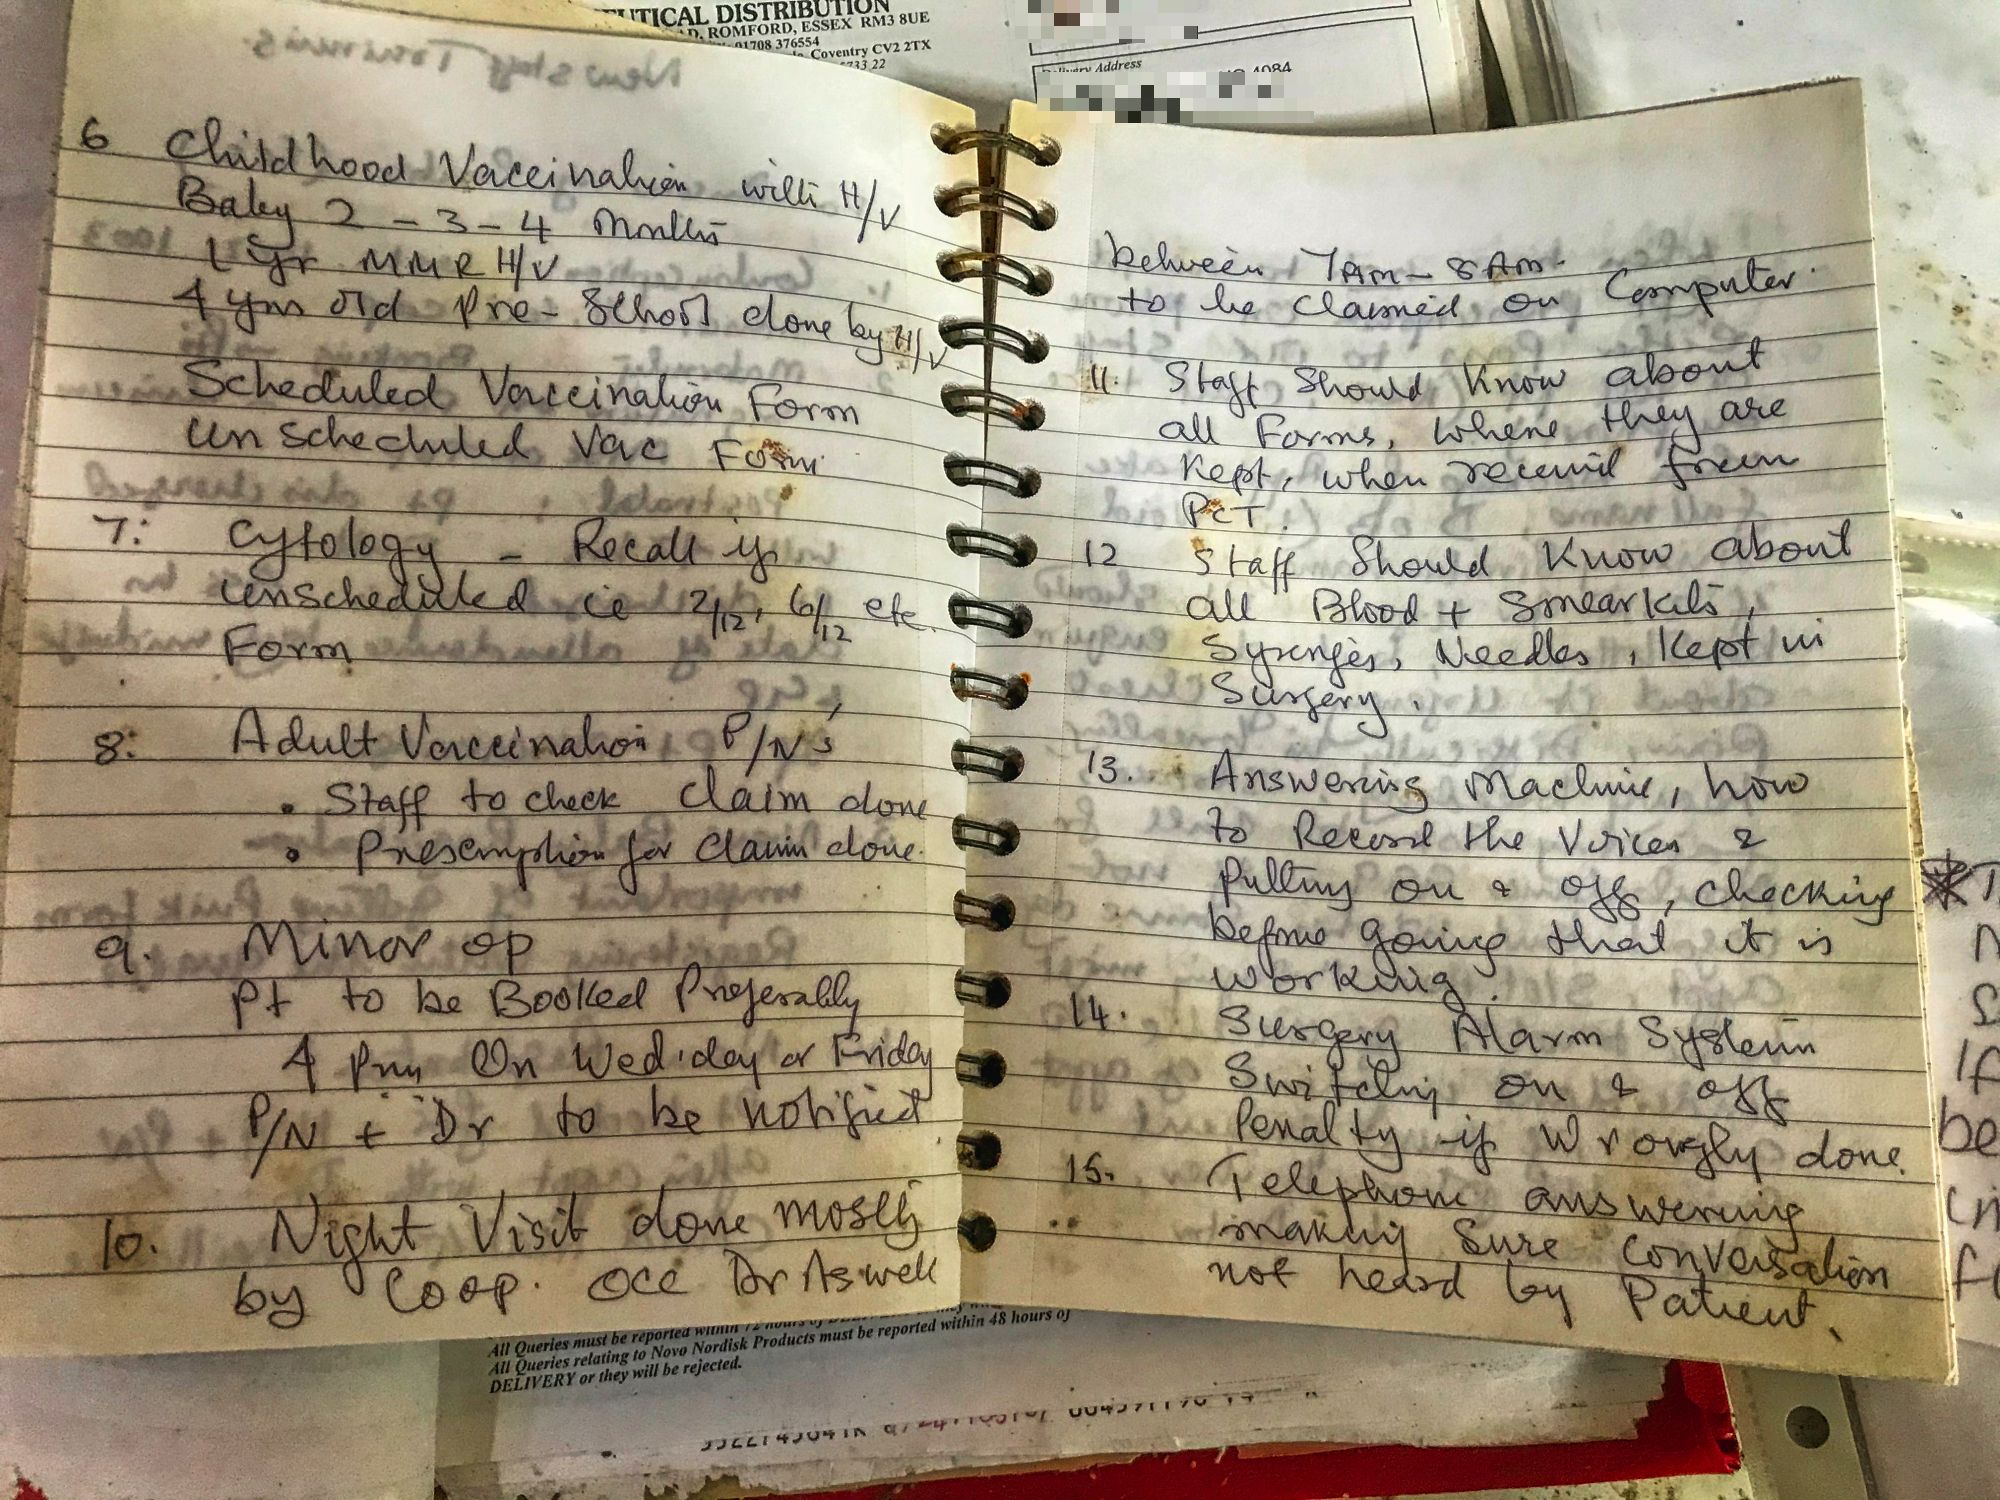 UTICAL DISTRIBUTION
ROMFORD, ESSEX RM3 8UE
01708 376554
Coventry CV2 2TX
733 22
Delivery Address
4084
New Staff Training
6 Childhood Vaccination with H/V
Baby 2 - 3 - 4 Months
1 yr MMR H/V
4 yrs old Pre-School done by H/V
Scheduled Vaccination Form
unscheduled Vac Form
7: Cytology - Recall if
unscheduled ie 2/12, 6/12 etc.
Form
8: Adult Vaccination P/N's
• Staff to check claim done
• Prescription for claim done.
9. Minor op
Pt to be Booked Preferably
4 pm On Wed.day or Friday
P/N + Dr to be notified.
10. Night Visit done mostly
by Coop. occ Dr Aswek
between 7AM - 8AM.
to be claimed on Computer.
11. Staff Should Know about
all Forms, where they are
Kept, when received from
PCT.
12 Staff Should Know about
all Blood + Smearkits,
Syringes, Needles, Kept in
Surgery.
13. Answering Machine, how
to Record the Voices &
Putting on & off, checking
before going that it is
working.
14. Surgery Alarm System
Switching on & off
Penalty if Wrongly done.
15. Telephone answering
making Sure conversation
not heard by Patient.
If
be
All Queries must be reported within 72 hours of
All Queries relating to Novo Nordisk Products must be reported within 48 hours of
DELIVERY or they will be rejected.